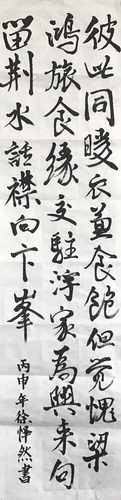 彼此同暖衣兼食飽但覺愧梁
鴻旅食緣交駐浮家為興來句
留荆水話襟向卞峯
丙申年徐然書